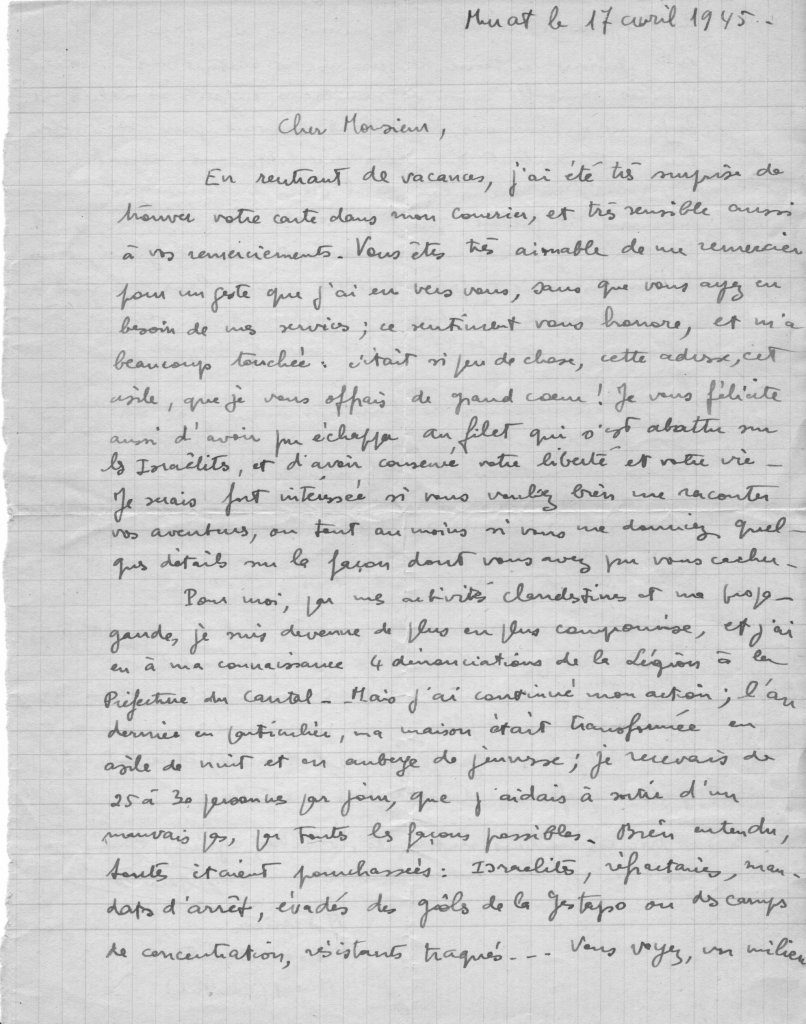 Murat le 17 avril 1945.-
Cher Monsieur,
En rentrant de vacances, j'ai été très surprise de
trouver votre carte dans mon courrier, et très sensible aussi
à vos remerciements. Vous êtes très aimable de me remercier
pour un geste que j'ai eu vers vous, sans que vous ayez eu
besoin de mes services ; ce sentiment vous honore, et m'a
beaucoup touchée : c'était si peu de chose, cette adresse, cet
asile, que je vous offrais de grand cœur ! Je vous félicite
aussi d'avoir pu échapper au filet qui s'est abattu sur
les Israëlites, et d'avoir conservé votre liberté et votre vie -
Je serais fort intéressée si vous vouliez bien me raconter
vos aventures, ou tout au moins si vous me donniez quel-
ques détails sur la façon dont vous avez pu vous cacher.-
Pour moi, par mes activités clandestines et ma propa-
gande, je suis devenue de plus en plus compromise, et j'ai
eu à ma connaissance 4 dénonciations de la Légion à la
Préfecture du Cantal - Mais j'ai continué mon action ; l'an
dernier en particulier, ma maison était transformée en
asile de nuit et en auberge de jeunesse ; je recevais de
25 à 30 personnes par jour, que j'aidais à sortir d'un
mauvais pas, par toutes les façons possibles. Bien entendu,
toutes étaient pourchassées : Israelites, réfractaires, man-
dats d'arrêt, évadés des geôles de la Gestapo ou des camps
de concentration, résistants traqués... Vous voyez, un milieu